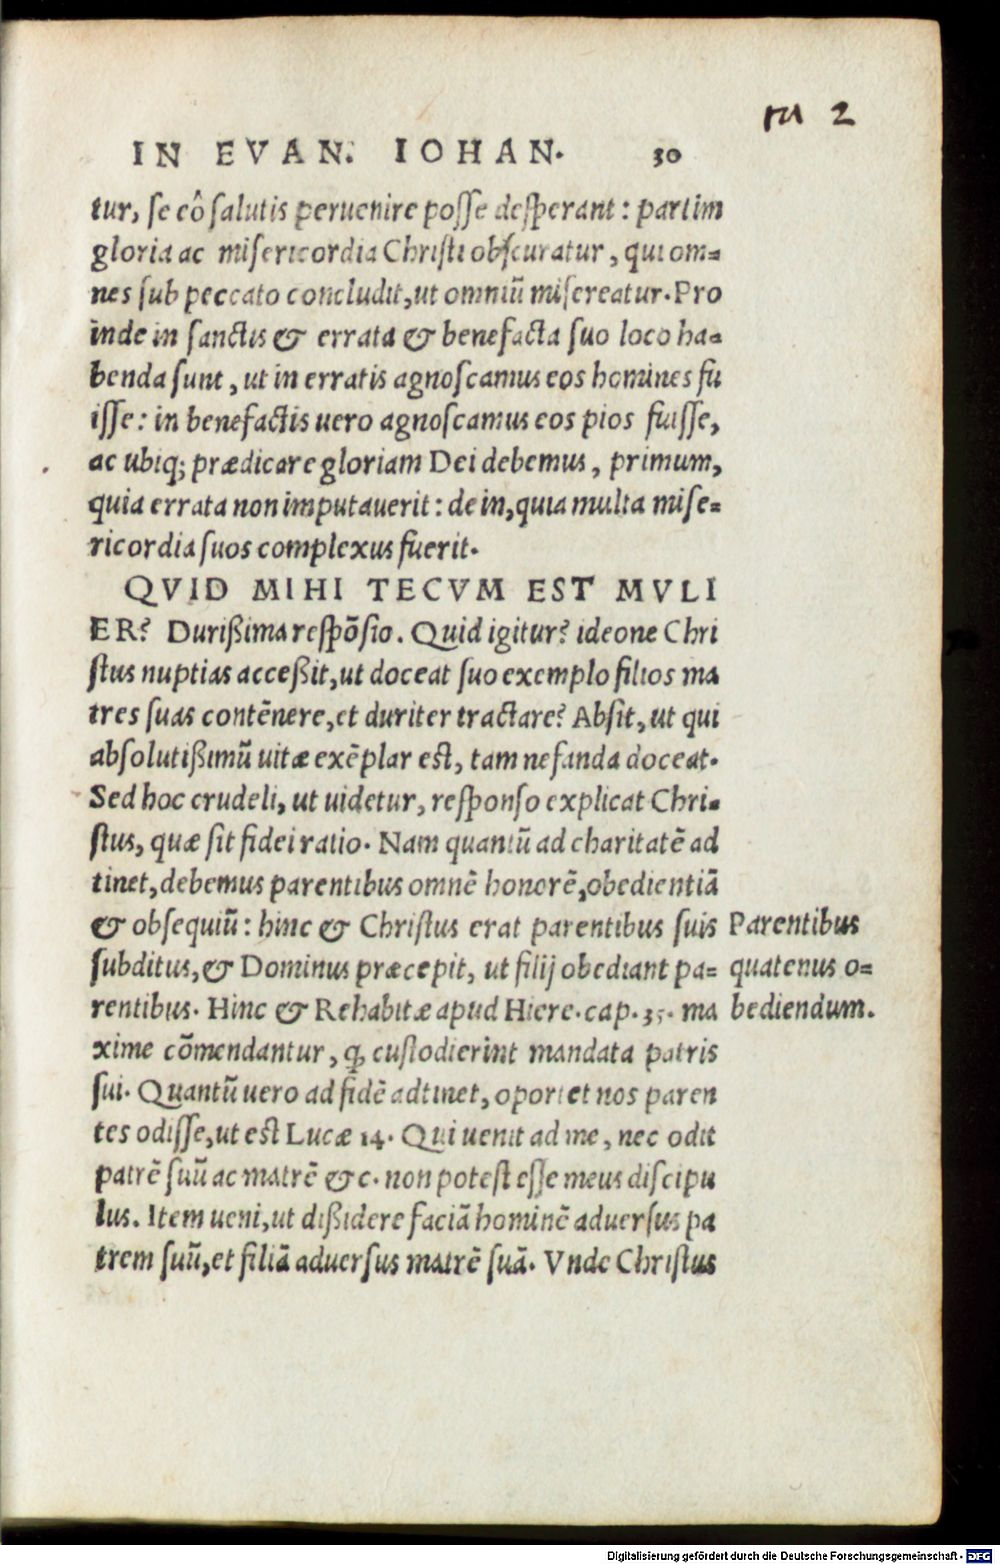 m 2
IN EVAN. IOHAN. 30
tur, se eô salutis peruenire posse desperant: partim
gloria ac misericordia Christi obscuratur, qui om=
nes sub peccato concludit, ut omniũ misereatur. Pro
inde in sanctis & errata & benefacta suo loco ha=
benda sunt, ut in erratis agnoscamus eos homines fu
isse: in benefactis uero agnoscamus eos pios fuisse,
ac ubiq; prædicare gloriam Dei debemus, primum,
quia errata non imputauerit: de in, quia multa mise=
ricordia suos complexus fuerit.
QVID MIHI TECVM EST MVLI
ER? Durißima respõsio. Quid igitur? ideone Chri
stus nuptias acceßit, ut doceat suo exemplo filios ma
tres suas contẽnere, et duriter tractare? Absit, ut qui
absolutißimũ uitæ exẽplar est, tam nefanda doceat.
Sed hoc crudeli, ut uidetur, responso explicat Chri=
stus, quæ sit fidei ratio. Nam quantũ ad charitatẽ ad
tinet, debemus parentibus omnẽ honorẽ, obedientiã
& obsequiũ: hinc & Christus erat parentibus suis
subditus, & Dominus præcepit, ut filij obediant pa=
rentibus. Hinc & Rehabitæ apud Hiere. cap. 35. ma
xime cõmendantur, q̃ custodierint mandata patris
sui. Quantũ uero ad fidẽ adtinet, oportet nos paren
tes odisse, ut est Lucæ 14. Qui uenit ad me, nec odit
patrẽ suũ ac matrẽ &c. non potest esse meus discipu
lus. Item ueni, ut dißidere faciã hominẽ aduersus pa
trem suũ, et filiã aduersus matrẽ suã. Vnde Christus
Parentibus
quatenus o=
bediendum.
Digitalisierung gefördert durch die Deutsche Forschungsgemeinschaft - DFG